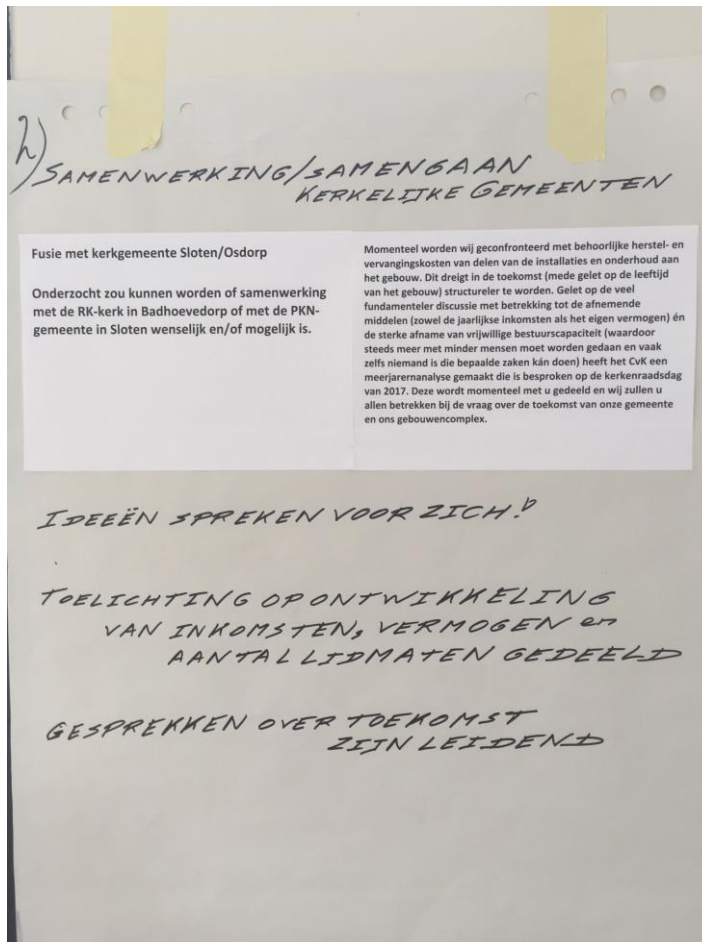 h) SAMENWERKING/SAMENGAAN
KERKELIJKE GEMEENTEN
Fusie met kerkgemeente Sloten/Osdorp
Onderzocht zou kunnen worden of samenwerking
met de RK-kerk in Badhoevedorp of met de PKN-
gemeente in Sloten wenselijk en/of mogelijk is.
Momenteel worden wij geconfronteerd met behoorlijke herstel- en
vervangingskosten van delen van de installaties en onderhoud aan
het gebouw. Dit dreigt in de toekomst (mede gelet op de leeftijd
van het gebouw) structureler te worden. Gelet op de veel
fundamenteler discussie met betrekking tot de afnemende
middelen (zowel de jaarlijkse inkomsten als het eigen vermogen) én
de sterke afname van vrijwillige bestuurscapaciteit (waardoor
steeds meer met minder mensen moet worden gedaan en vaak
zelfs niemand is die bepaalde zaken kán doen) heeft het CvK een
meerjarernanalyse gemaakt die is besproken op de kerkenraadsdag
van 2017. Deze wordt momenteel met u gedeeld en wij zullen u
allen betrekken bij de vraag over de toekomst van onze gemeente
en ons gebouwencomplex.
IDEEËN SPREKEN VOOR ZICH!
TOELICHTING OP ONTWIKKELING
VAN INKOMSTEN, VERMOGEN en
AANTAL LIDMATEN GEDEELD
GESPREKKEN OVER TOEKOMST
ZIJN LEIDEND